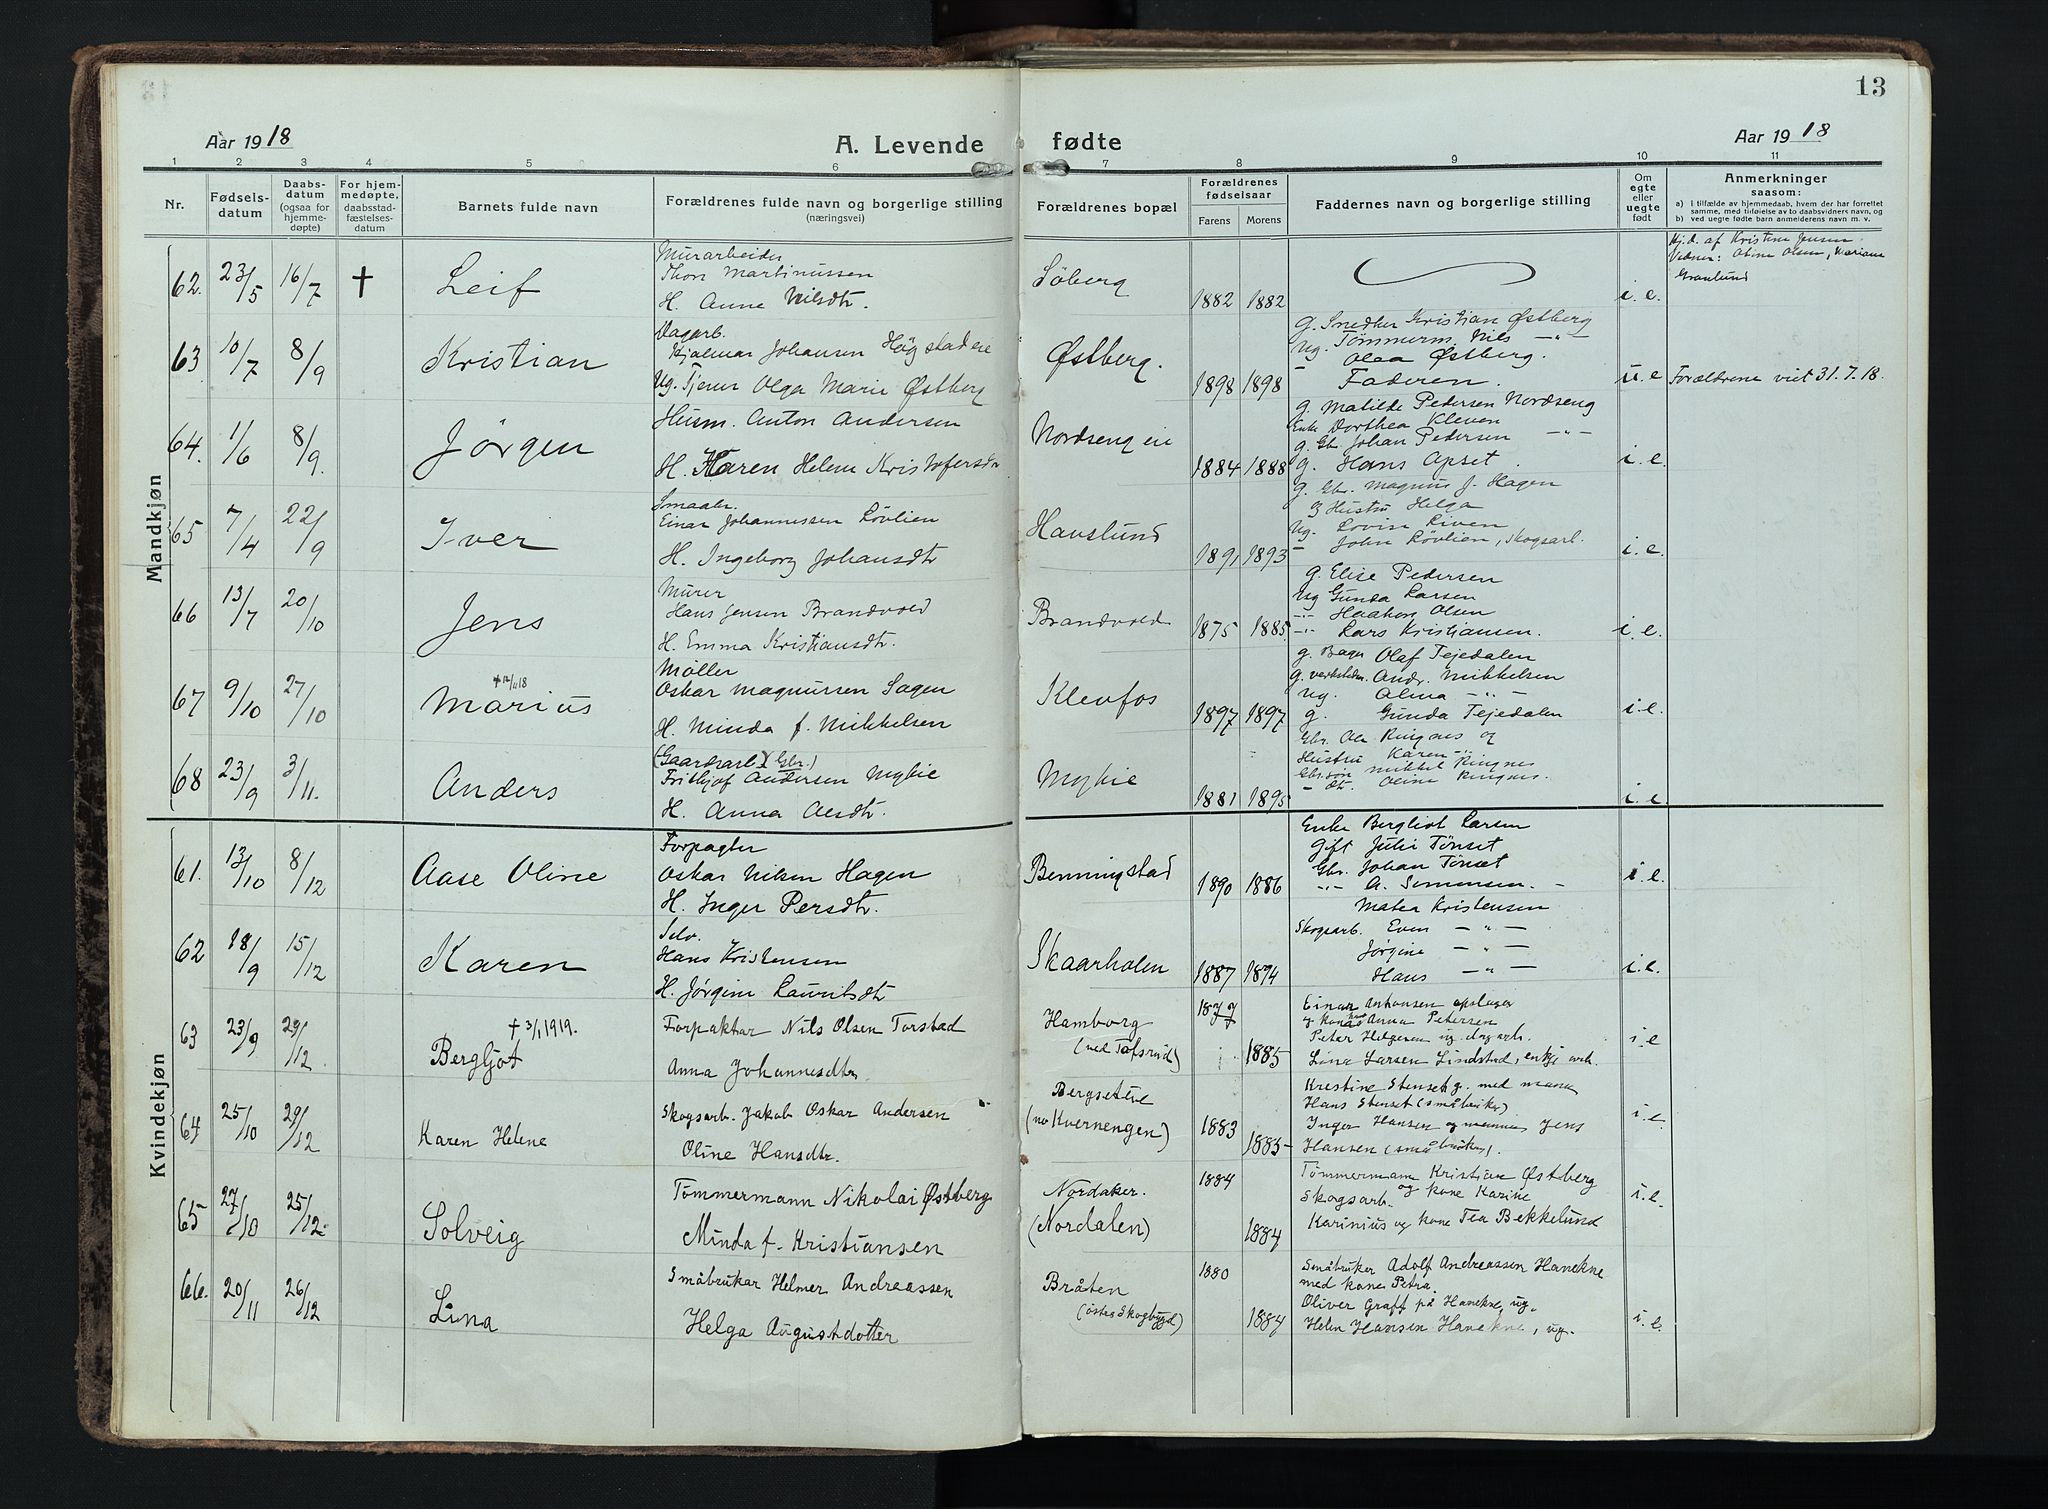 13
Aar 1918
A. Levende fødte
Aar 1918
1 2 3 4 5 6 7 8 9 10 11
Nr.
Fødsels-
datum
Daabs-
datum
(ogsaa for
hjemme-
døpte)
For hjem-
medøpte,
daabsstad-
fæstelses-
datum
Barnets fulde navn
Forældrenes fulde navn og borgerlige stilling
(næringsvei)
Forældrenes bopæl
Forældrenes
fødselsaar
Farens Morens
Faddernes navn og borgerlige stilling
Om
egte
eller
uegte
født
Anmerkninger
saasom:
a) I tilfælde av hjemmedaab, hvem der har forrettet
samme, med tilføielse av to daabsvidners navn, og
b) ved uegte fødte barn anmelderens navn m. v.
Mandkjøn
62. 23/5 16/7 † Leif
Murarbeider
Thore Martinussen
H. Anne Nilsdtr.
Söberg
1882 1882
i. e.
Hj.d. af Kristine Jensen
Vidner: Oline Olsen, Mariane
Granlund
63 10/7 8/9 Kristian
Dagarb.
Hjalmar Johansen Høgstad eie
Ug. Tjener Olga Marie Østberg
Østberg.
1898 1898
g. Snedker Kristian Østberg
ug. Tømmerm. Nils — " —
Olaa Østberg.
- Faderen.
u. e
Forældrene viet 31.7.18.
64. 1/6 8/9. Jørgen
Husm. Anton Andersen
H. Karen Helene Kristofersdtr
Nordseng eie
1884 1888
g. Matilde Pedersen Nordseng
Enke Dorthea Kleven
g. Gbr. Johan Pedersen — " —
g. Hans Opset.
i. e.
65 7/4 22/9 Iver
Smaabr.
Einar Johannessen Løvlien
H. Ingeborg Johansdtr
Havslund
1891 1893
g. Gbr. Magnus J. Hagen
Hustru Helga
Ug. Lovise Liven
- John Løvlien, Skogsarb.
i. e.
66 13/7 20/10 Jens
Murer
Hans Jensen Brandvold
H. Emma Kristiansdtr.
Brandvold
1875 1885
g. Elise Pedersen
Ug Gunda Larsen
-"- Haakon Olsen
-"- Lars Kristiansen.
i. e.
67 9/10 27/10 Marius
Møller
Oskar Magnussen Sagen
H. Minda f. Mikkelsen
Klevfos
1897 1897
g. Bager Olaf Tejedalen
g. Andr. Mikkelsen
ug. Alma — " —
g. Gunda Tejedalen
i. e.
68 23/9 3/11. Anders
(Gaardsarb.) (Gbr.)
Frithjof Andersen Myhie
H. Anna Olsdtr.
Myhie
1881 1895
Gbr. Ole Ringnes og
Hustru Karen -"-
Gbr.søn Mikkel Ringnes
- dtr. Oline Ringnes.
i. e.
Kvindekjøn
61. 13/10 8/12 Aase Oline
Forpagter
Oskar Nilsen Hagen
H. Inger Persdtr.
Benningstad
1890 1886
Enke Bergliot Larsen
Gift Julie Tønset
Gbr. Johan Tønset
-"- A. Simensen. -
i. e.
62 18/9 15/12 Karen
Selv.
Hans Kristensen
H. Jørgine Lauritsdtr
Skaarholen
1887 1894
Matea Kristensen
Skogsarb. Even — " —
Jørgine — " —
Hans — " —
i. e.
63 23/9 29/12. † 3/1 1919.
Bergljot
Forpaktar Nils Olsen Torstad
Anna Johannesdtr.
Hamborg
(ved Tofsrud)
1877
1885
Einar Antonsen opslager
g kone Anna Petersen
Peter Helgesen ug dagarb.
Lina Larsen Lindstad, enkje arb.
i. e
64 25/10 29/12 Karen Helene
Skogsarb. Jakob Oskar Andersen
Oline Hansdtr.
Bergseteie
(nu Kvernengen)
1883
1885
Kristine Stenset g. med mann
Hans Stenset (småbruker)
Inger Hansen og mannen Jens
Hansen (småbruker).
i. e
65 27/10 25/12. Solveig
Tömmermann Nikolai Østberg
Minda f. Kristiansen
Nordaker.
(Nordalen)
1884
1884
Tömmermann Kristian Østberg
Skogsarb. og kone Karine
Karinius og kone Tea Bekkelund
i. e.
66. 20/11 26/12 Lina
Småbrukar Helmer Andreassen
Helga Augustdotter
Bråten
(østre Skogbygd)
1880
1884
Småbruker Adolf Andreassen Hanekne
med kone Petra.
Oliver Graff på Hanekne, ug.
Helen Hansen Hanekne, ug.
i. e.